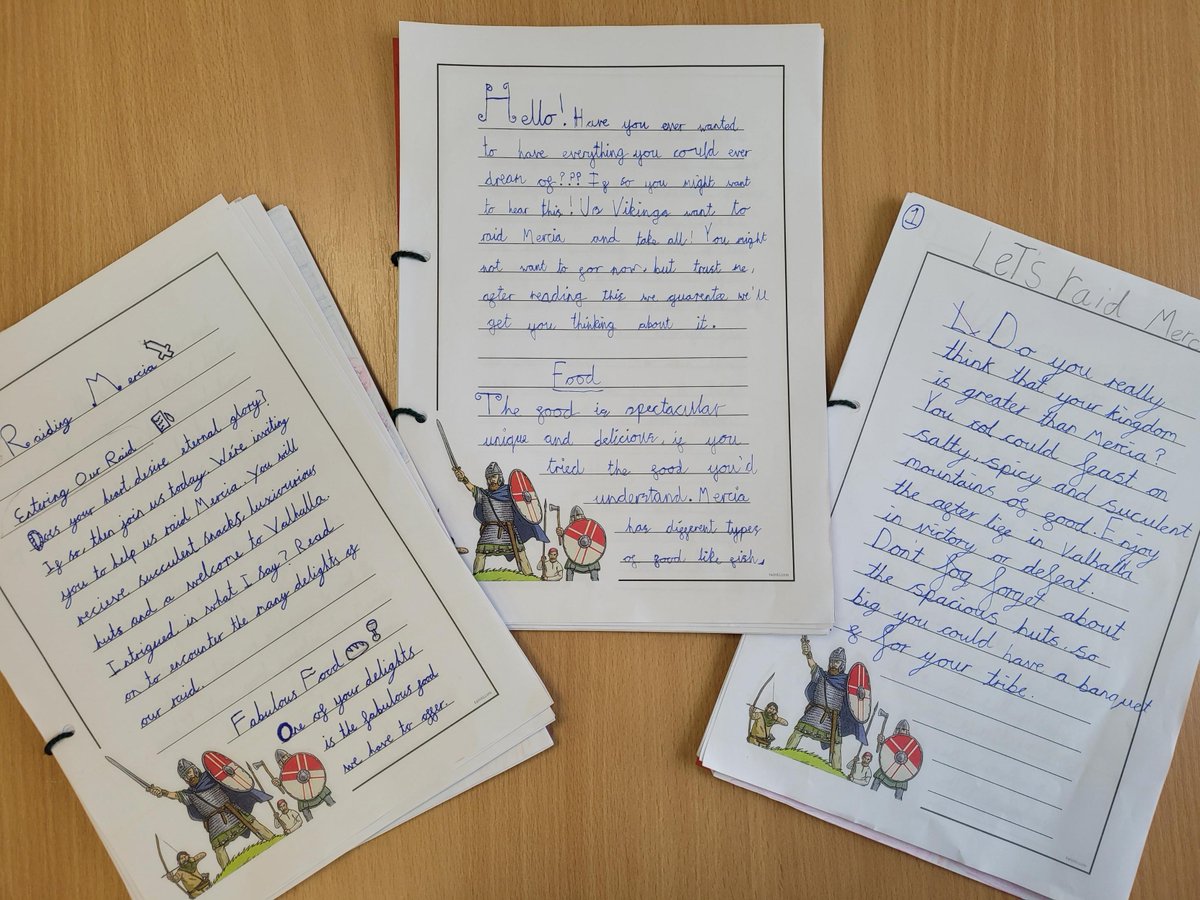 Raiding Mercia
Entering Our Raid
Does your heart desire eternal glory?
If so, then join us today. We're inviting
you to help us raid Mercia. You will
recieve succulent snacks, luxiourious
huts and a welcome to Valhalla.
Intrigued in what I say? Read
on to encounter the many delights of
our raid.
Fabulous Food
One of your delights
is the fabulous food
we have to offer.
Hello! Have you ever wanted
to have everything you could ever
dream of??? If so you might want
to hear this! Us Vikings want to
raid Mercia and take all! You might
not want to for now, but trust me,
after reading this we guarantee we'll
get you thinking about it.
Food
The food is spectacular
unique and delicious, if you
tried the food you'd
understand. Mercia
has different types
of food like fish,
twinkl.com
1
LeT's raid Merc
Do you really
think that your kingdom
is greater than Mercia?
You could feast on
salty, spicy and succulent
mountains of food. Enjoy
the after life in Valhalla
in victory or defeat.
Don't fog forget about
the spacious huts, so
big you could have a banquet
f for your tribe.